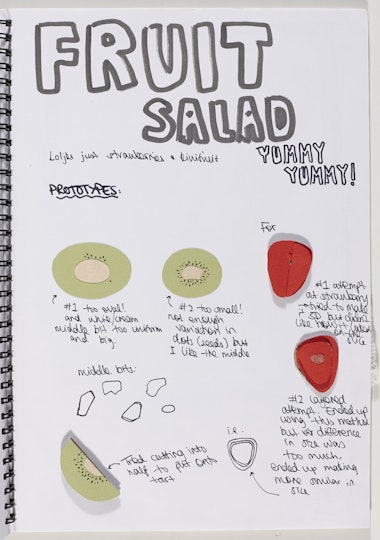 FRUIT
SALAD
Lol its just strawberries & kiwifruit
YUMMY
YUMMY!
PROTOTYPES:
For
#1 too oval!
and white/cream
middle bit too uniform
and big.
#2 too small!
not enough
variation in
dots (seeds) but
I like the middle
#1 attempt
at strawberry
tried to make
it 3D but didn't
like how it
on the
middle bits:
#2 layered
attempt. Ended up
using this method
but size difference
in size was
too much,
ended up making
more similar in
size
Tried cutting into
half to put onto
tart
i.e.